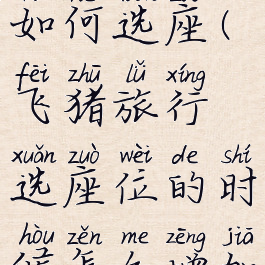 如何选座(
fēi zhū lǚ xíng
飞猪旅行
xuǎn zuò wèi de shí
选座位的时
hòu zěn me zēng jiā
候怎么增加